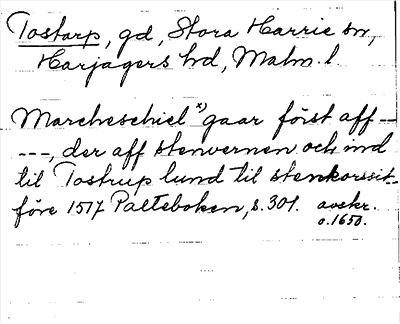 Tostarp, gd, Stora Harrie sn,
Harjagers hd, Malm. l.
Marcheschiel "gaar först aff –
– – –, der aff stenvernen och ind
til Tostrup lund til stenkorssit –
före 1517 Palteboken, s. 301. avskr.
c. 1650.